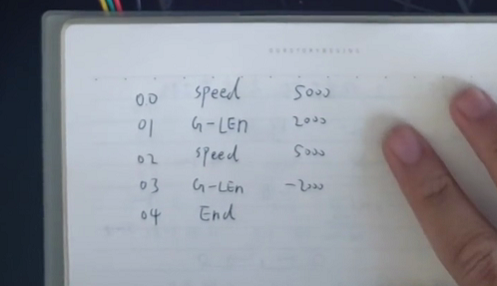 00 Speed 5000
01 G-LEn 2000
02 Speed 5000
03 G-LEn -2000
04 End